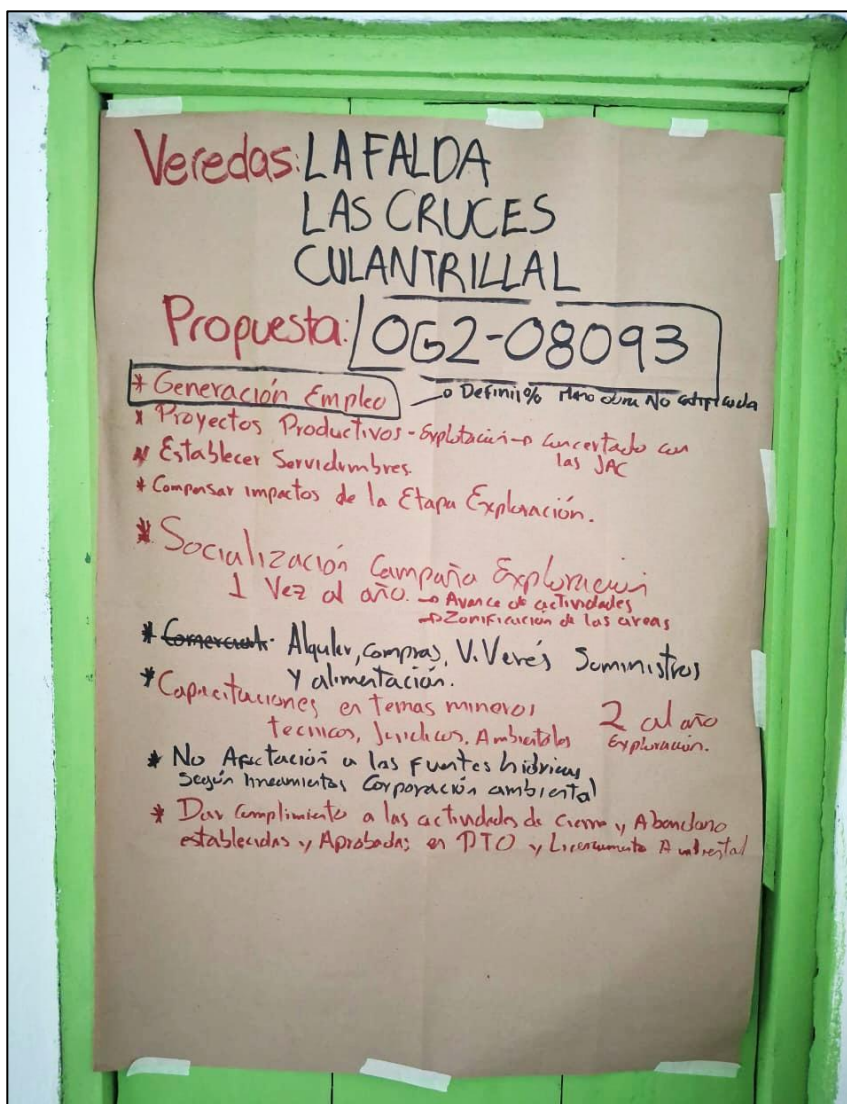 Veredas: LA FALDA
LAS CRUCES
CULANTRILLAL
Propuesta: OG2-08093
* Generación Empleo → Definir % Mano obra No calificada
* Proyectos Productivos - Explotación → Concertado con
las JAC
* Establecer Servidumbres.
* Compensar impactos de la Etapa Exploración.
* Socialización Campaña Exploración
1 Vez al año. → Avance de actividades
→ Zonificación de las areas
* Alquiler, compras, V.Verés Suministros
y alimentación.
* Capacitaciones en temas mineros
tecnicos, Juridicos, Ambientales 2 al año
Exploración.
* No Afectación a las Fuentes hidricas
Según lineamientos Corporación ambiental
* Dar Cumplimiento a las actividades de cierre y Abandono
establecidas y Aprobadas en PTO y Licenciamiento Ambiental